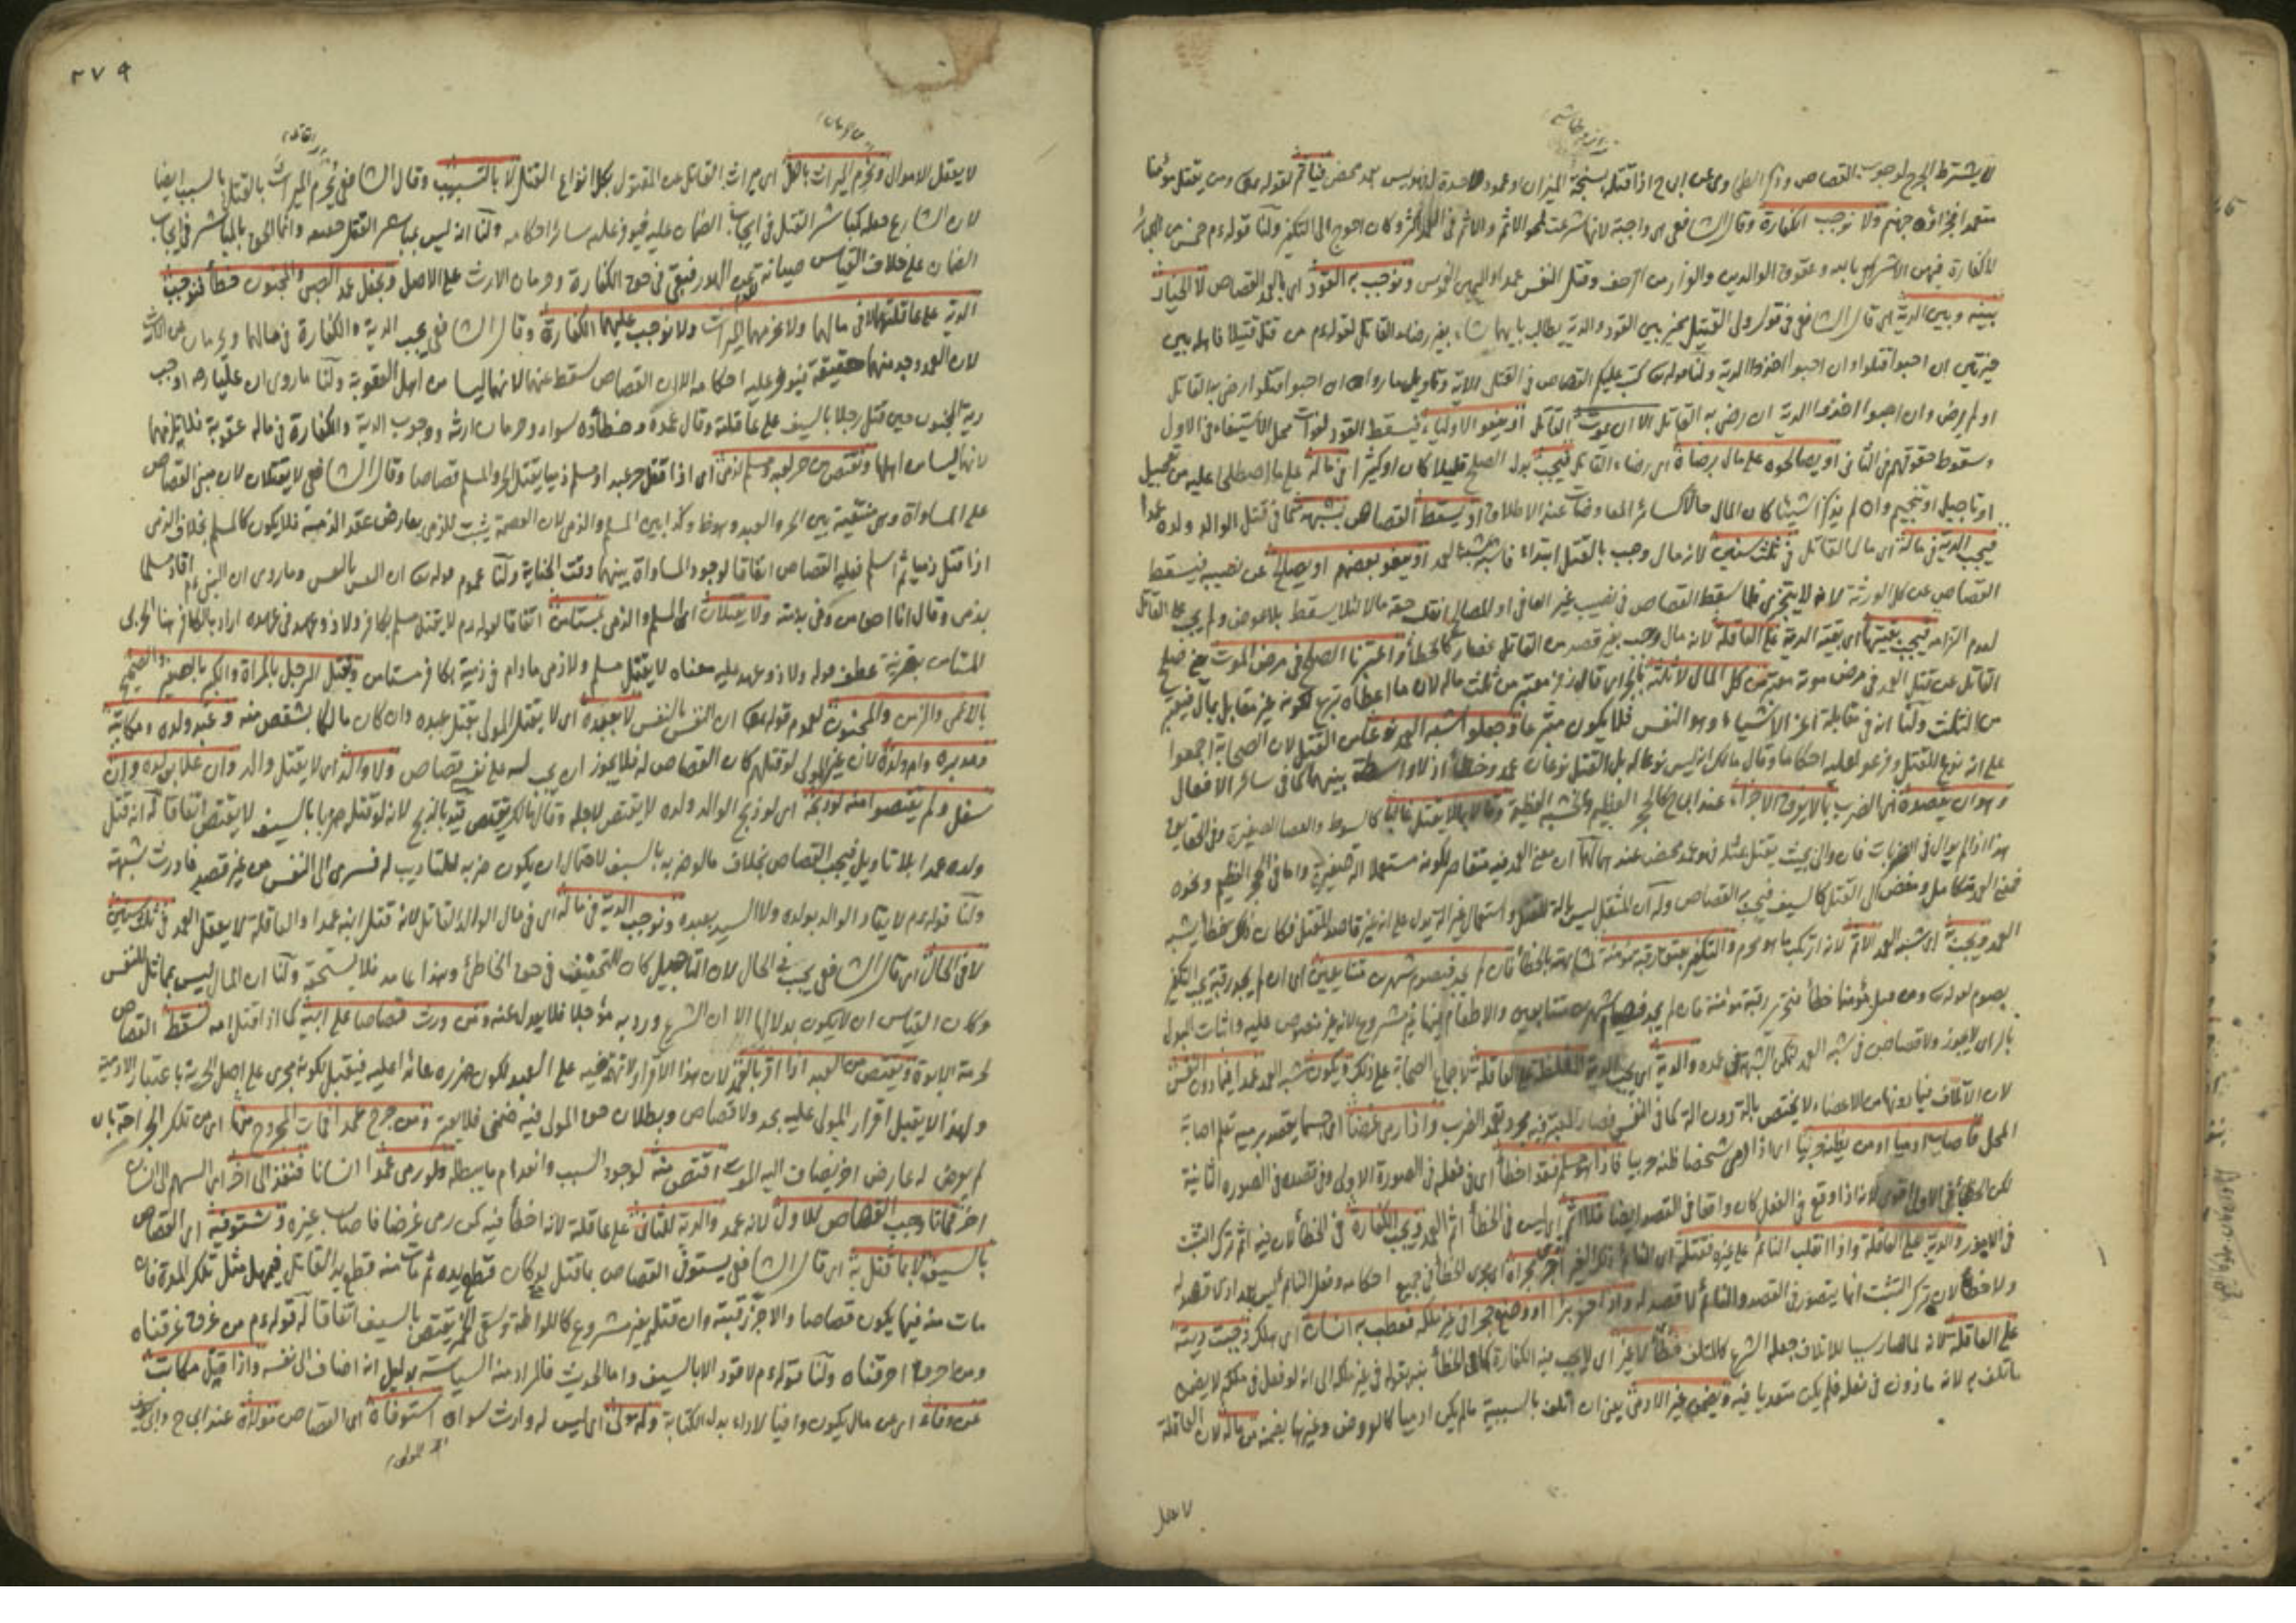 لا يشترط الجرح لوجوب القصاص وذكر الطحاوي عن ابي ح اذا قتله بسنجة الميزان او عمود لا حدة له فهو ليس بعمد محض فياثم لقوله تعالى ومن يقتل مؤمنا
متعمدا فجزاؤه جهنم ولا نوجب الكفارة وقال الشافعي هي واجبة لانها شرعت لمحو الاثم والاثم في العمد اكثر وكان احوج الى التكفير ولنا قوله عم خمس من الكبائر
لا كفارة فيهن الاشراك بالله وعقوق الوالدين والفرار من الزحف وقتل النفس عمدا واليمين الغموس ونوجب به القود اي بالعمد القصاص لا الخيار
بينه وبين الدية اي قال الشافعي في قول ولي القتيل مخير بين القود والدية يطالب بايهما شاء بغير رضاء القاتل لقوله عم من قتل قتيلا فاهله بين
خيرتين ان احبوا قتلوا وان احبوا اخذوا الدية ولنا قوله تعالى كتب عليكم القصاص في القتلى الاية وتاويل ما رواه ان احبوا قتلوا رضي به القاتل
او لم يرض وان احبوا اخذوا الدية ان رضي به القاتل الا ان يموت القاتل او يعفو الاولياء فيسقط القود لفوات محل الاستيفاء في الاول
وسقوط حقوقهم في الثاني او يصالحوه على مال برضاه اي رضاء القاتل فيجب بدل الصلح قليلا كان او كثيرا في ماله على ما اصطلحا عليه من تعجيل
او تاجيل او تنجيم وان لم يذكرا شيئا كان المال حالا كسائر المعاوضات عند الاطلاق او يسقط القصاص بشبهة كما في قتل الوالد ولده عمدا
فيجب الدية في ماله اي مال القاتل في ثلث سنين لانه مال وجب بالقتل ابتداء فاشبه شبه العمد او يعفو بعضهم او يصالح عن نصيبه فيسقط
القصاص عن كل الورثة لانه لا يتجزى فلما سقط القصاص في نصيب غير العافي او المصالح انقلب حقه مالا لئلا يسقط بلا عوض ولم يجب على القاتل
لعدم التزامه فيجب بقيتها اي بقية الدية على العاقلة لانه مال وجب بغير قصد من القاتل فصار كالخطأ واعتبرنا الصلح في مرض الموت يعني صلح
القاتل عن قتل العمد في مرض موته معتبر من كل المال لا ثلثه بالجر اي قال زفر معتبر من ثلث ماله لان ما اعطاه تبرع لكونه غير مقابل بمال فيعتبر
من الثلث ولنا انه في مقابلة اعز الاشياء وهو النفس فلا يكون متبرعا وجعلوا شبه العمد نوعا من القتل لان الصحابة اجمعوا
على انه نوع للقتل وفرعوا عليه احكاما وقال مالك انه ليس نوعا له بل القتل نوعان عمد وخطأ اذ لا واسطة بينهما كما في سائر الافعال
وهو ان يقصده اي الضرب بما لا يفرق الاجزاء عند ابي ح كالحجر العظيم والخشبة العظيمة وقالا بما لا يقتل غالبا كالسوط والعصا الصغيرة وفي الحقائق
هذا اذا لم يوال في الضربات فان والى بحيث يقتل بمثله فهو عمد محض عندهما لهما ان معنى العمد فيه متقاصر لكونه مستعملا الة صغيرة واما في الحجر العظيم ونحوه
فمعنى العمد متكامل ومفض الى القتل كالسيف فيجب القصاص وله ان المثقل ليس بالة للقتل واستعمال غير الة يدل على انه غير قاصد للقتل فكان ذلك خطأ يشبه
العمد ويجب به اي بشبه العمد الاثم لانه ارتكب ما هو محرم والتكفير بعتق رقبة مؤمنة لمشابهته بالخطأ فان لم يجد فيصوم شهرين متتابعين اي ان لم يجد رقبة يجب التكفير
بصوم لقوله تعالى ومن قتل مؤمنا خطأ فتحرير رقبة مؤمنة فان لم يجد فصيام شهرين متتابعين والاطعام فيها غير مشروع لانه غير منصوص عليه واثبات البدل
بالراي لا يجوز ولا قصاص في شبه العمد لتمكن الشبهة في عمده والدية اي يجب الدية المغلظة على العاقلة لاجماع الصحابة على ذلك ويكون شبه العمد عمدا فيما دون النفس
لان الاتلاف فيما دونها من الاعضاء لا يختص بالة دون الة كما في النفس فصار المعتبر فيه مجرد تعمد الضرب واذا رمى غرضا اي جسما يقصد برميه تعلم اصابة
المحل فاصاب ادميا او من يظنه حربيا اي اذا رمى شخصا ظنه حربيا فاذا هو مسلم فقد اخطأ اي في فعله في الصورة الاولى وفي قصده في الصورة الثانية
لكن الخطأ في الاول اقوى لانه اذا وقع في الفعل كان واقعا في القصد ايضا فلا اثم اي ليس في الخطأ اثم العمد ويجب الكفارة في الخطأ لان فيه اثم ترك التثبت
في الامور والدية على العاقلة واذا انقلب النائم على غيره فقتله اي النائم ذلك الغير اجري مجراه اي مجرى الخطأ في جميع احكامه وفعل النائم ليس بعمد اذ لا قصد له
ولا خطأ لان ترك التثبت انما يتصور في القصد والنائم لا قصد له واذا حفر بئرا او وضع حجرا في غير ملكه فعطب به انسان اي هلك وجبت ديته
على العاقلة لانه لما صار سببا للاتلاف جعله الشرع كالمتلف خطأ لا غير اي لا يجب فيه الكفارة كما في الخطأ بقوله في غير ملكه الى انه لو فعل في ملكه لا يضمن
ما تلف به لانه ماذون في فعله فلم يكن متعديا فيه ويضمن غير الادمي يعني ان اتلف بالسببية ما لم يكن ادميا كالعروض وغيرها يضمنه من ماله لان العاقلة
لا يعقل
٢٧٩
لا يعقل الاموال ونحرم الميراث بالكل اي ميراث القاتل عن المقتول بكل انواع القتل لا بالتسبيب وقال الشافعي يحرم الميراث بالقتل بالسبب ايضا
لان الشارع جعله كمباشر القتل في ايجاب الضمان عليه فيوفر عليه سائر احكامه ولنا انه ليس بمباشر القتل حقيقة وانما الحق بالمباشر في ايجاب
الضمان على خلاف القياس صيانة عن الهدر فبقي في حق الكفارة وحرمان الارث على الاصل ونجعل عمد الصبي والمجنون خطأ فنوجب
الدية على عاقلتهما لا في مالهما ولا نحرمهما الميراث ولا نوجب عليهما الكفارة وقال الشافعي يجب الدية والكفارة في مالهما ويحرمان عن الارث
لان العمد وجد منهما حقيقة فيوفر عليه احكامه الا ان القصاص سقط عنهما لانهما ليسا من اهل العقوبة ولنا ما روي ان عليا رضه اوجب
دية المجنون حين قتل رجلا بالسيف على عاقلته وقال عمده وخطأه سواء وحرمان ارثه ووجوب الدية والكفارة في ماله عقوبة فلا يلزمهما
لانهما ليسا من اهلها ونقتص من حر لعبد ومسلم لذمي اي اذا قتل حر عبدا او مسلم ذميا يقتل الحر والمسلم قصاصا وقال الشافعي لا يقتلان لان مبنى القصاص
على المساواة وهي منتفية بين الحر والعبد وهو ظ وكذا بين المسلم والذمي لان العصمة يثبت للذمي بعارض عقد الذمة فلا يكون كالمسلم بخلاف الذمي
اذا قتل ذميا ثم اسلم فعليه القصاص اتفاقا لوجود المساواة بينهما وقت الجناية ولنا عموم قوله تعالى ان النفس بالنفس وما روي ان النبي عم اقاد مسلما
بذمي وقال انا احق من وفى بذمته ولا يقتلان اي المسلم والذمي بمستامن اتفاقا لقوله عم لا يقتل مسلم بكافر ولا ذو عهد في عهده اراد بالكافر هنا الحربي
المستامن بقرينة عطف قوله ولا ذو عهد عليه معناه لا يقتل مسلم ولا ذمي ما دام في ذمته بكافر مستامن ونقتل الرجل بالمراة والكبير بالصغير والصحيح
بالاعمى والزمن والمجنون لعموم قوله تعالى ان النفس بالنفس لا بعبده اي لا يقتل المولى بقتل عبده وان كان مالكا بشقص منه وعبد ولده ومكاتبه
ومدبره وام ولده لان غير المولى لو قتلهم كان القصاص له فلا يجوز ان يجب له على نفسه قصاص ولا والد اي لا يقتل والد وان علا بولده وان
سفل ولم يقتصوا منه لو ذبحه اي لو ذبح الوالد ولده لا يقتص لاجله وقال مالك يقتص قيد بالذبح لانه لو قتله ضربا بالسيف لا يقتص اتفاقا له انه قتل
ولده عمدا بلا تاويل فيجب القصاص بخلاف ما لو ضربه بالسيف لاحتمال ان يكون ضربه للتاديب له فسرى الى النفس من غير قصد فاورث شبهة
ولنا قوله عم لا يقاد الوالد بولده ولا السيد بعبده ونوجب الدية في ماله اي في مال الوالد القاتل لانه قتل ابنه عمدا والعاقلة لا يعقل العمد في ثلث سنين
لا في الحال اي قال الشافعي يجب في الحال لان التاجيل كان للتخفيف في حق الخاطئ وهذا عامد فلا يستحقه ولنا ان المال ليس بمماثل للنفس
وكان القياس ان لا يكون بدلا لها الا ان الشرع ورد به مؤجلا فلا يعدل عنه ومن ورث قصاصا على ابيه كما اذا قتل امه سقط القصاص
لحرمة الابوة ويقتص من العبد اذا اقر بالعمد لان هذا الاقرار لا تهمة فيه على العبد لكون ضرره عائدا عليه فيقبل لكونه مجرى على اصل الحرية باعتبار الادمية
ولهذا لا يقبل اقرار المولى عليه بحد ولا قصاص وبطلان حق المولى فيه ضمني فلا يعتبر ومن جرح عمدا فمات المجروح منها اي من تلك الجراحة بان
لم يعرض له عارض اخر يضاف اليه الموت اقتص منه لوجود السبب وانعدام ما يبطله ولو رمى عمدا انسانا فنفذ الى اخر اي السهم الى انسان
اخر فماتا وجب القصاص للاول لانه عمد والدية للثاني على عاقلته لانه اخطأ فيه كمن رمى غرضا فاصاب غيره ونستوفيه اي القصاص
بالسيف لا بما قتل به اي قال الشافعي يستوفى القصاص بما قتل به لو كان قطع يده ثم مات منه قطع يد القاتل فيمهل مثل تلك المدة فان
مات منه فيها يكون قصاصا والا جز رقبته وان قتله بغير مشروع كاللواطة وسقي الخمر يقتص بالسيف اتفاقا له قوله عم من غرق غرقناه
ومن احرق احرقناه ولنا قوله عم لا قود الا بالسيف واما الحديث فالمراد منه السياسة بدليل انه اضاف الى نفسه واذا قتل مكاتب
عن وفاء اي عن مال يكون وافيا لاداء بدل الكتابة وله مولى اي ليس له وارث سواه استوفاه اي القصاص مولاه عند ابي ح وابي يوسف